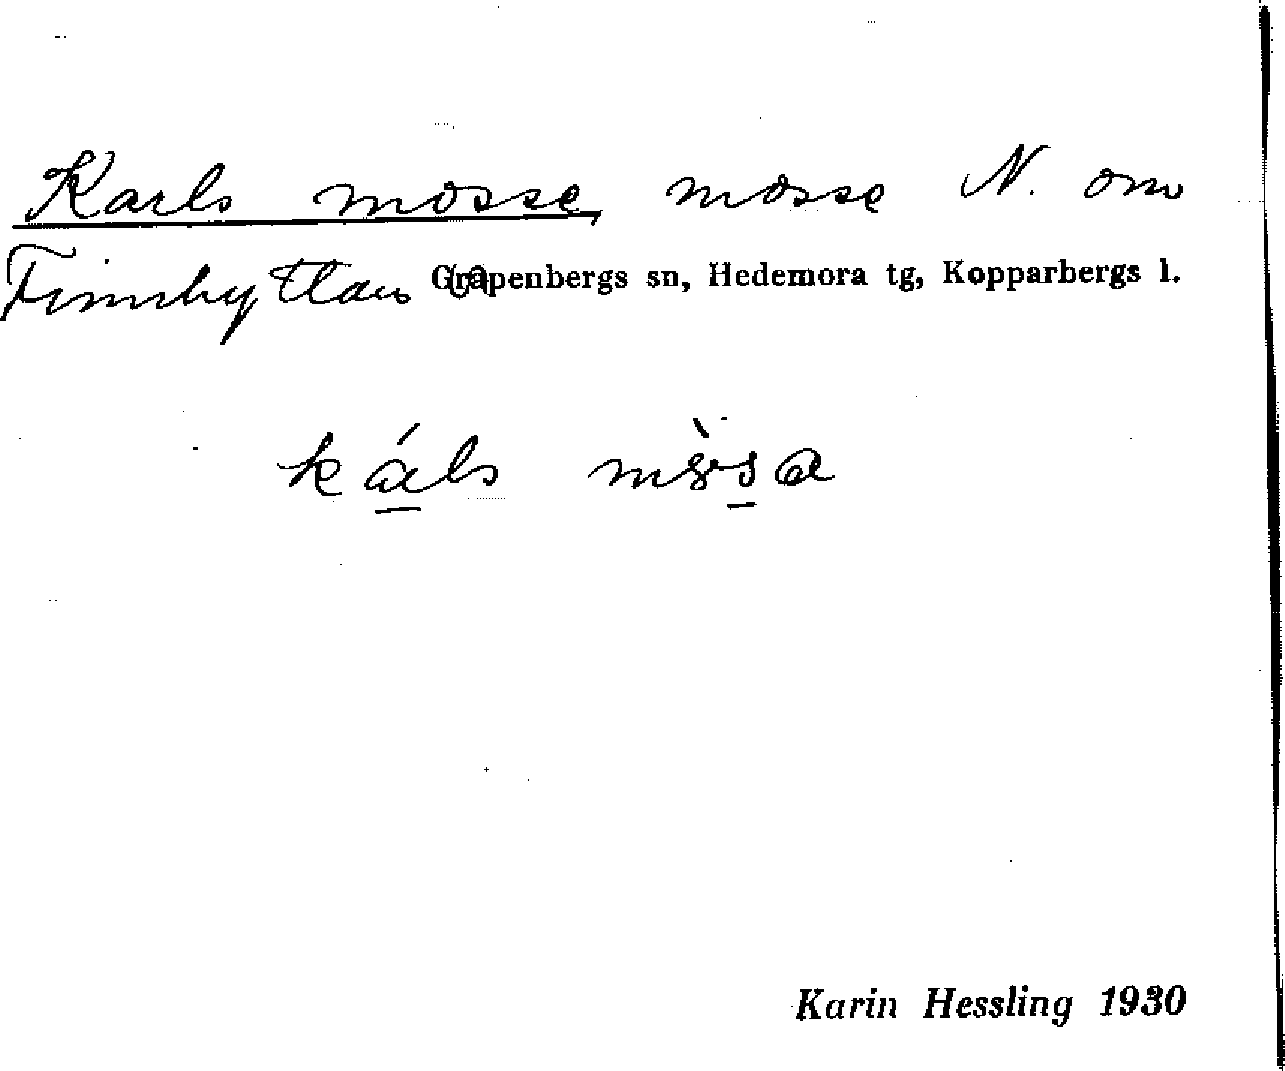 Karls mosse, mosse N. om
Finnhyttan Grapenbergs sn, Hedemora tg, Kopparbergs l.
káls
Karin Hessling 1930